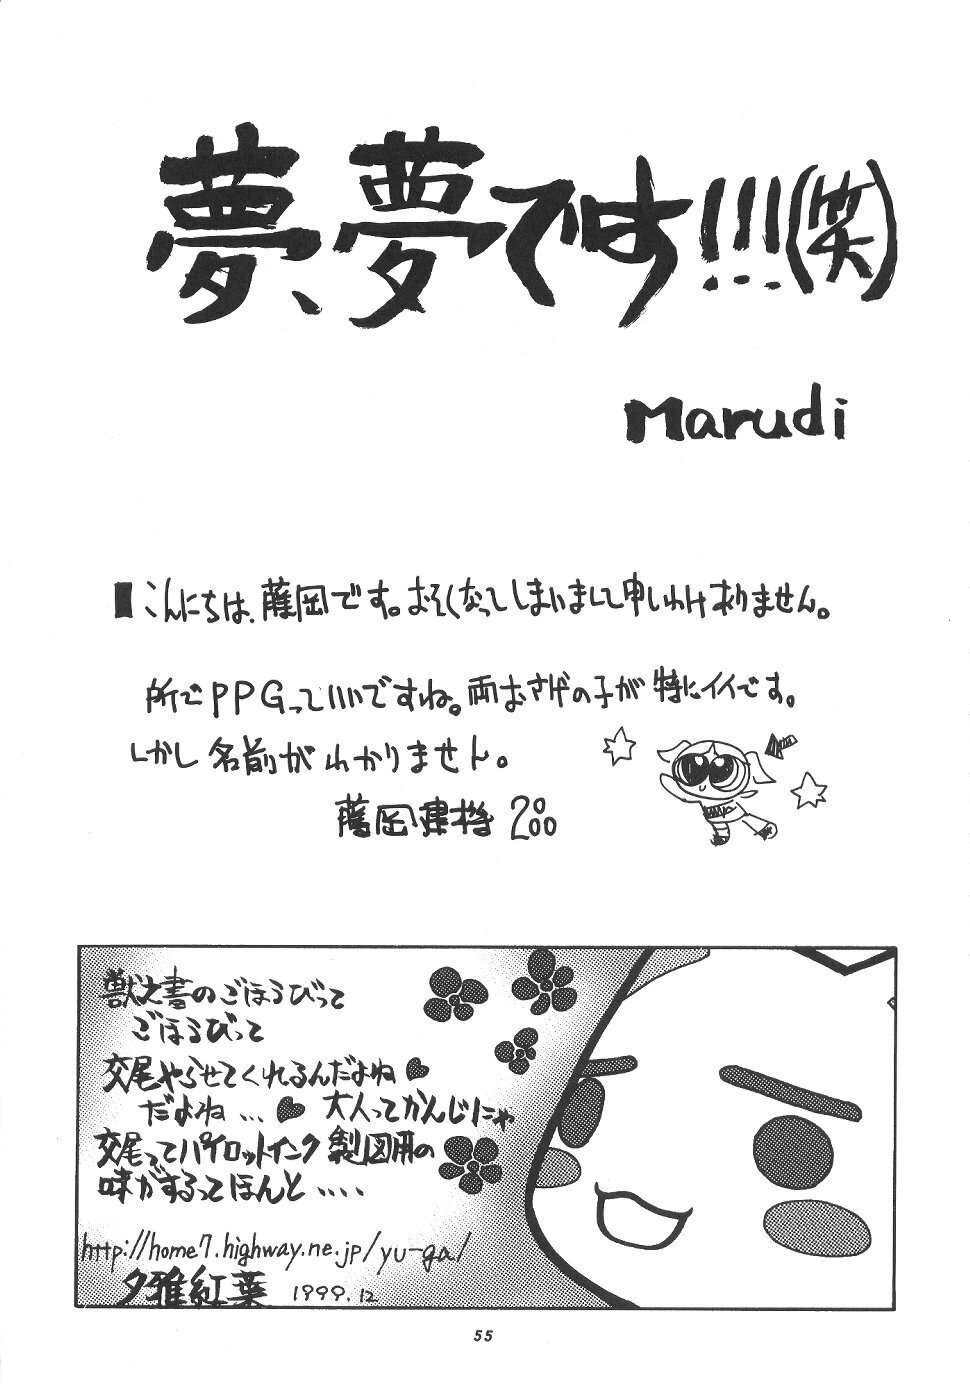 夢、夢です!!!(笑)
Marudi
こんにちは、薩岡です。おそくなってしまいまして申しわけありません。
所でPPGっていいですね。両おさげの子が特にイイです。
しかし名前がわかりません。
薩岡建機 2000
獣之書のごほうびって
ごほうびって
交尾やらせてくれるんだよね♥
だよね...♥ 大人ってかんじにゃ
交尾ってパイロットインク製図用の
味がするってほんと....
http://home7.highway.ne.jp/yu-ga/
夕雅紅葉 1999.12
55